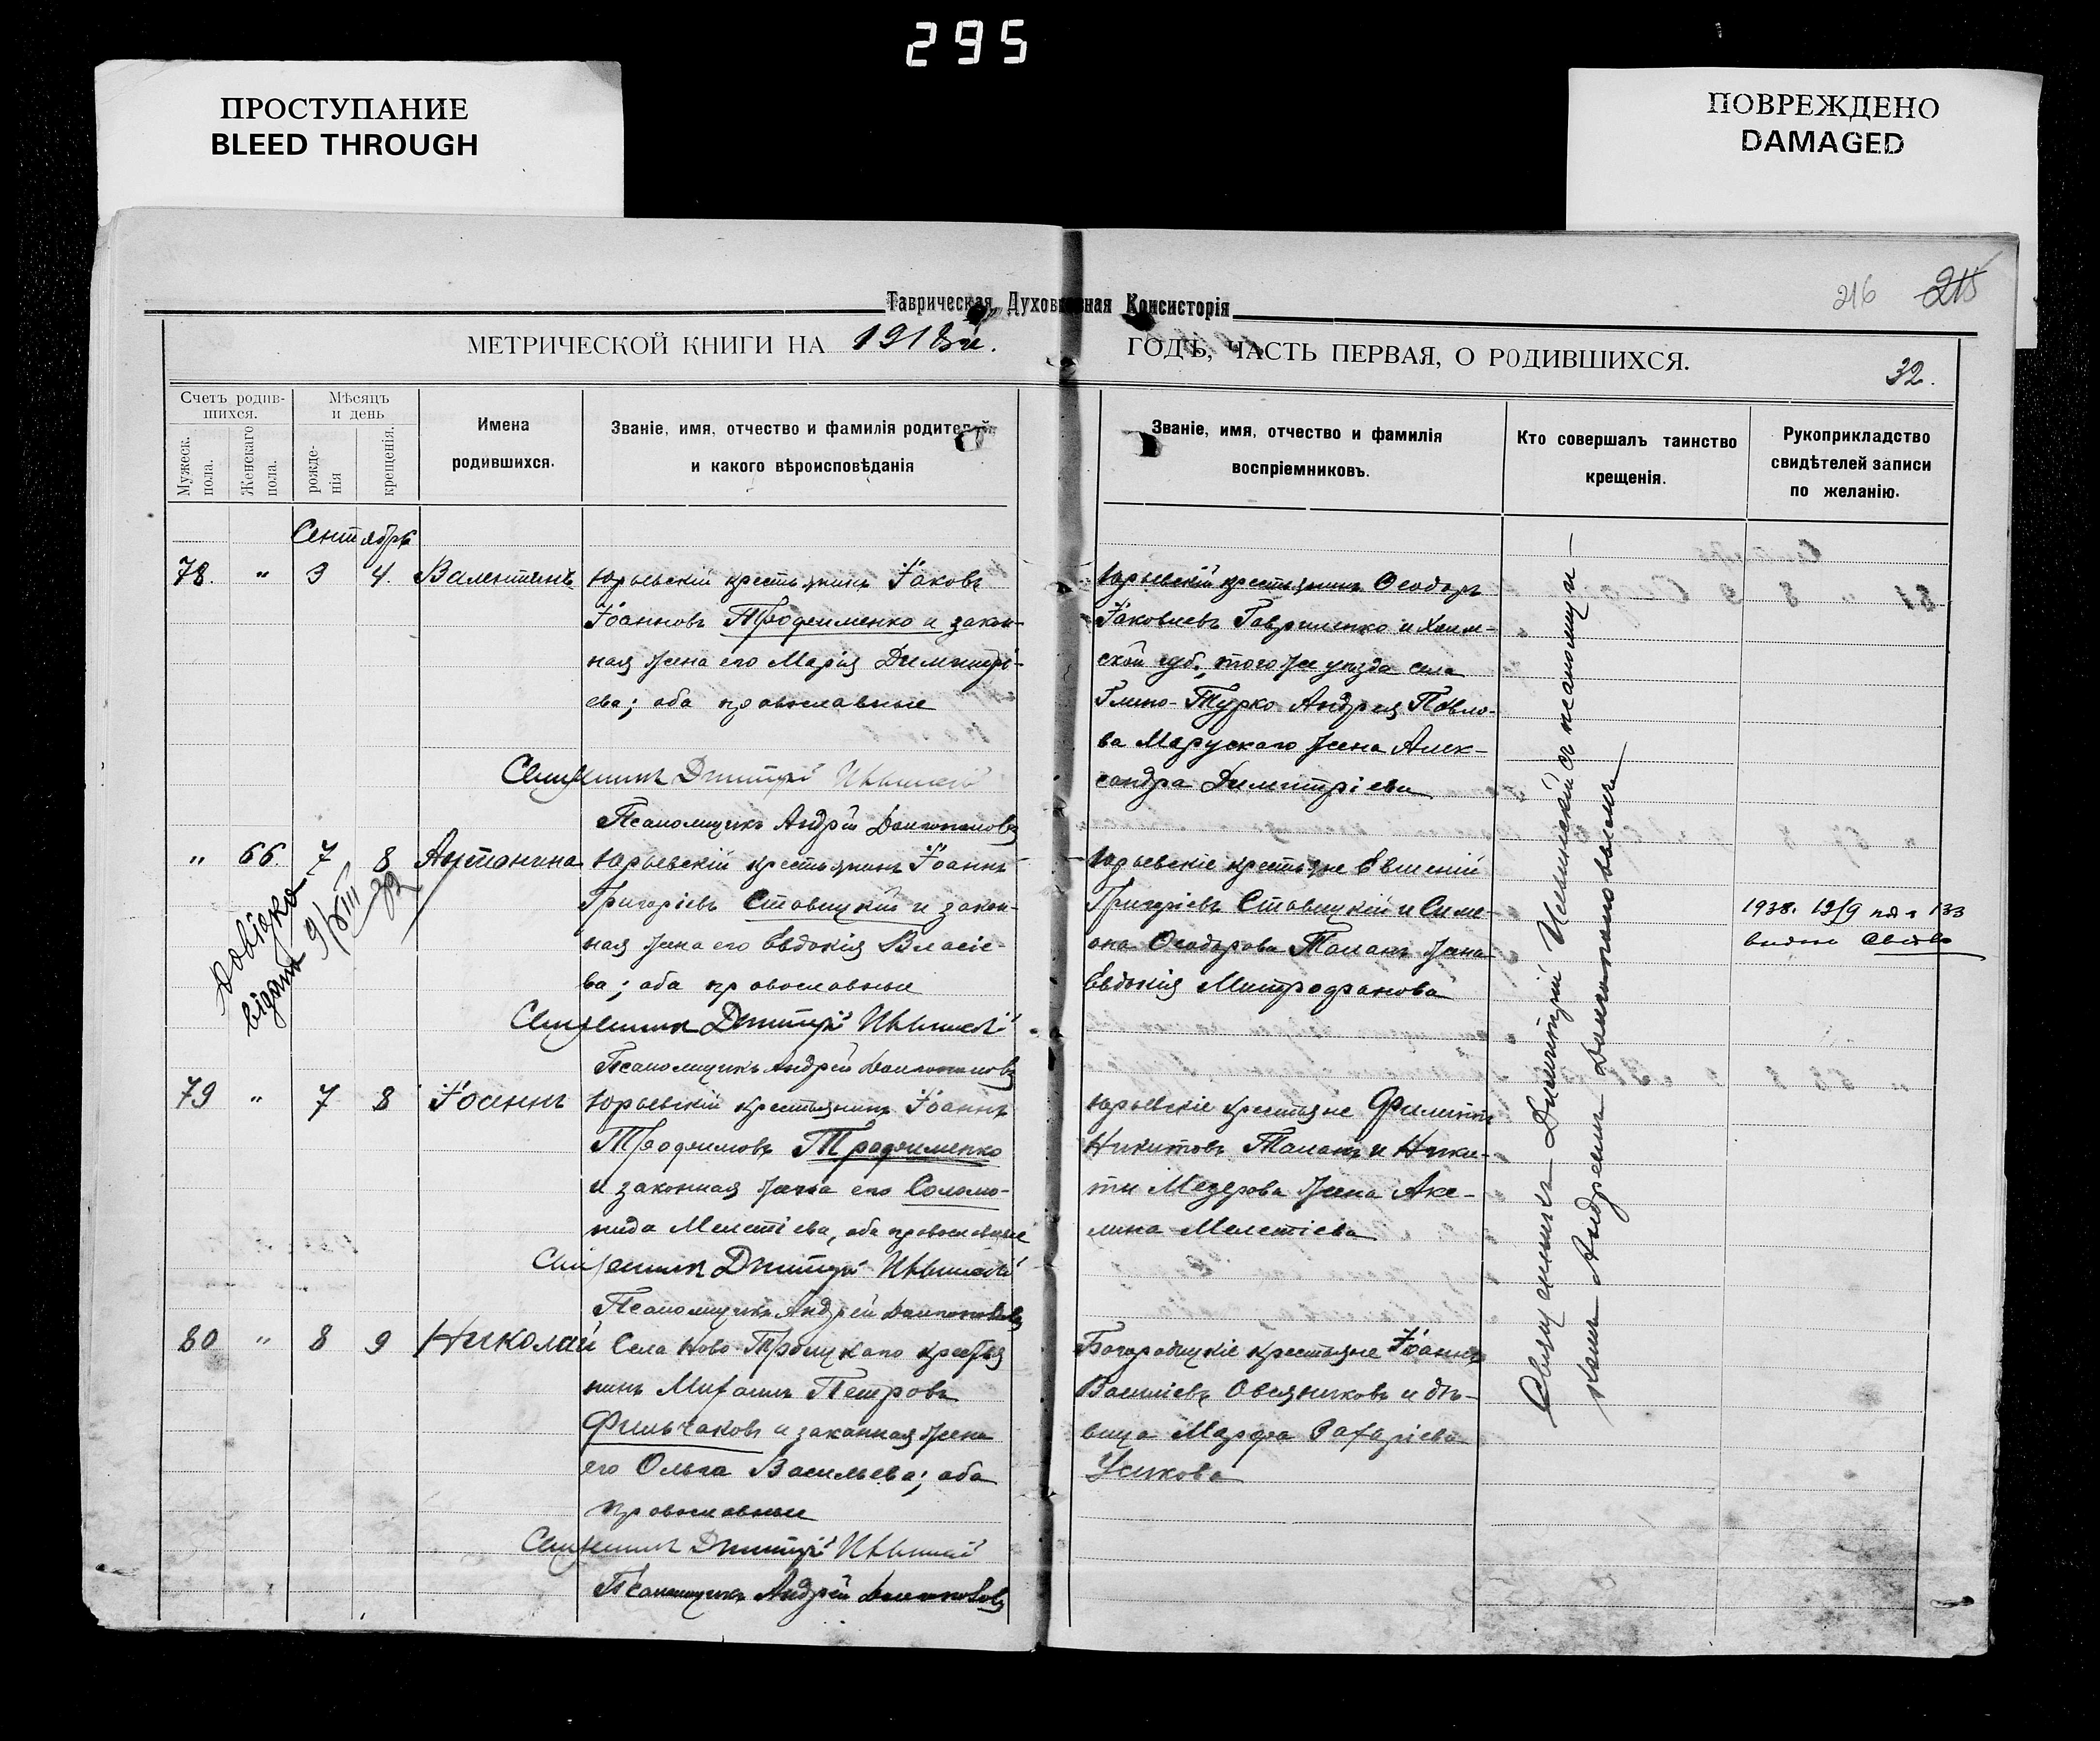 295
ПРОСТУПАНИЕ
BLEED THROUGH
ПОВРЕЖДЕНО
DAMAGED
216 215
Таврическая Духовная Консисторія
МЕТРИЧЕСКОЙ КНИГИ НА 1918й. ГОДЪ, ЧАСТЬ ПЕРВАЯ, О РОДИВШИХСЯ.
32.
Счетъ родив-
шихся.
Мужеск.
пола.
Женскаго
пола.
Мѣсяцъ
и день
рожде-
нія
крещенія.
Имена
родившихся.
Званіе, имя, отчество и фамилія родителей
и какого вѣроисповѣданія
Званіе, имя, отчество и фамилія
воспріемниковъ.
Кто совершалъ таинство
крещенія.
Рукоприкладство
свидѣтелей записи
по желанію.
Сентябрь
78. " 3 4 Валентинъ
Юрьевскій крестьянинъ Іаковъ
Іоанновъ Трофименко и закон-
ная жена его Марія Димитрі-
ева; оба православные
Священникъ Дмитрій
Псаломщикъ Андрей
Юрьевскій крестьянинъ Ѳеодоръ
Іаковлевъ Гавриленко и Холм-
ской губ., того же уѣзда села
Андрея Павло-
ва Марускаго жена Алек-
сандра Димитріева
" 66. 7 8 Антонина
Юрьевскій крестьянинъ Іоаннъ
Григоріевъ Ставицкій и закон-
ная жена его Евдокія Власіе-
ва; оба православные
Священникъ Дмитрій
Псаломщикъ Андрей
Юрьевскіе крестьяне Евгеній
Григоріевъ Ставицкій и Симе-
она Ѳеодорова Палакъ жена
Евдокія Митрофанова
Довідка
видана 9/VIII 32
1938. 19/9 133
79 " 7 8 Іоаннъ
Юрьевскій крестьянинъ Іоаннъ
Трофимовъ Трофименко
и законная жена его Соломо-
нида Мелетіева, оба православные
Священникъ Дмитрій
Псаломщикъ Андрей
Юрьевскіе крестьяне Филиппъ
Никитовъ и Ники-
ты Мезерова жена Аке-
лина Мелетіева
80 " 8 9 Николай
Села Ново-Троицкаго крестья
нинъ Михаилъ Петровъ
Фильчаковъ и законная жена
его Ольга Васильева; оба
православные
Священникъ Дмитрій
Псаломщикъ Андрей
Богородицкіе крестьяне Іоаннъ
Васильевъ Овсянниковъ и дѣ-
вица Марфа Захаріева
Усикова
Священникъ Димитрій съ псаломщи-
комъ Андреемъ